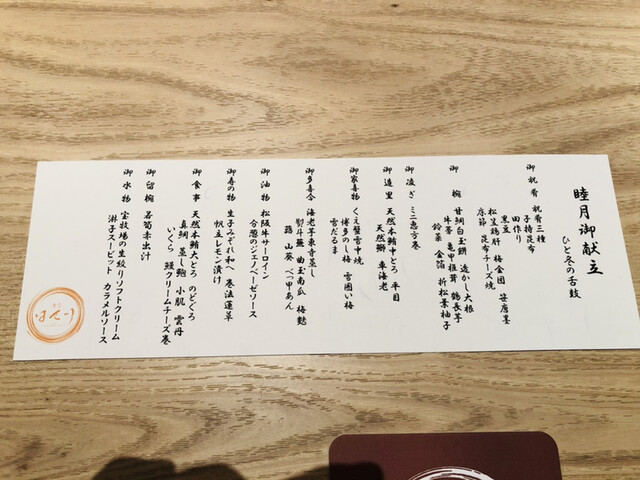 睦月御献立
ひと冬の舌鼓
御祝肴 祝肴三種
子持昆布
黒豆
田作り
松笠鶏肝 梅金団 笹唐墨
床節 昆布チーズ焼
御椀 甘鯛白玉餅 透かし大根
牛蒡 亀甲椎茸 鶴長芋
鈴菜 金箔 折松葉柚子
御凌ぎ ミニ恵方巻
御造里 天然本鮪中とろ 平目
天然鰤 車海老
御家喜物 くえ蟹雪中焼
博多のし梅 雪囲い梅
雪だるま
御多喜合 海老芋東寺蒸し
熨斗蕪 曲玉南瓜 梅麩
蕗 山葵 べっ甲あん
御油物 松阪牛サーロイン
分葱のジェノベーゼソース
御寿の物 生子みぞれ和へ 巻法蓮草
帆立レモン漬け
御食事 天然本鮪大とろ のどぐろ
真鯛 蒸し鮑 小肌 雲丹
いくら 鰻クリームチーズ巻
御留椀 若筍赤出汁
御水物 宝牧場の生絞りソフトクリーム
淋子スービット カラメルソース